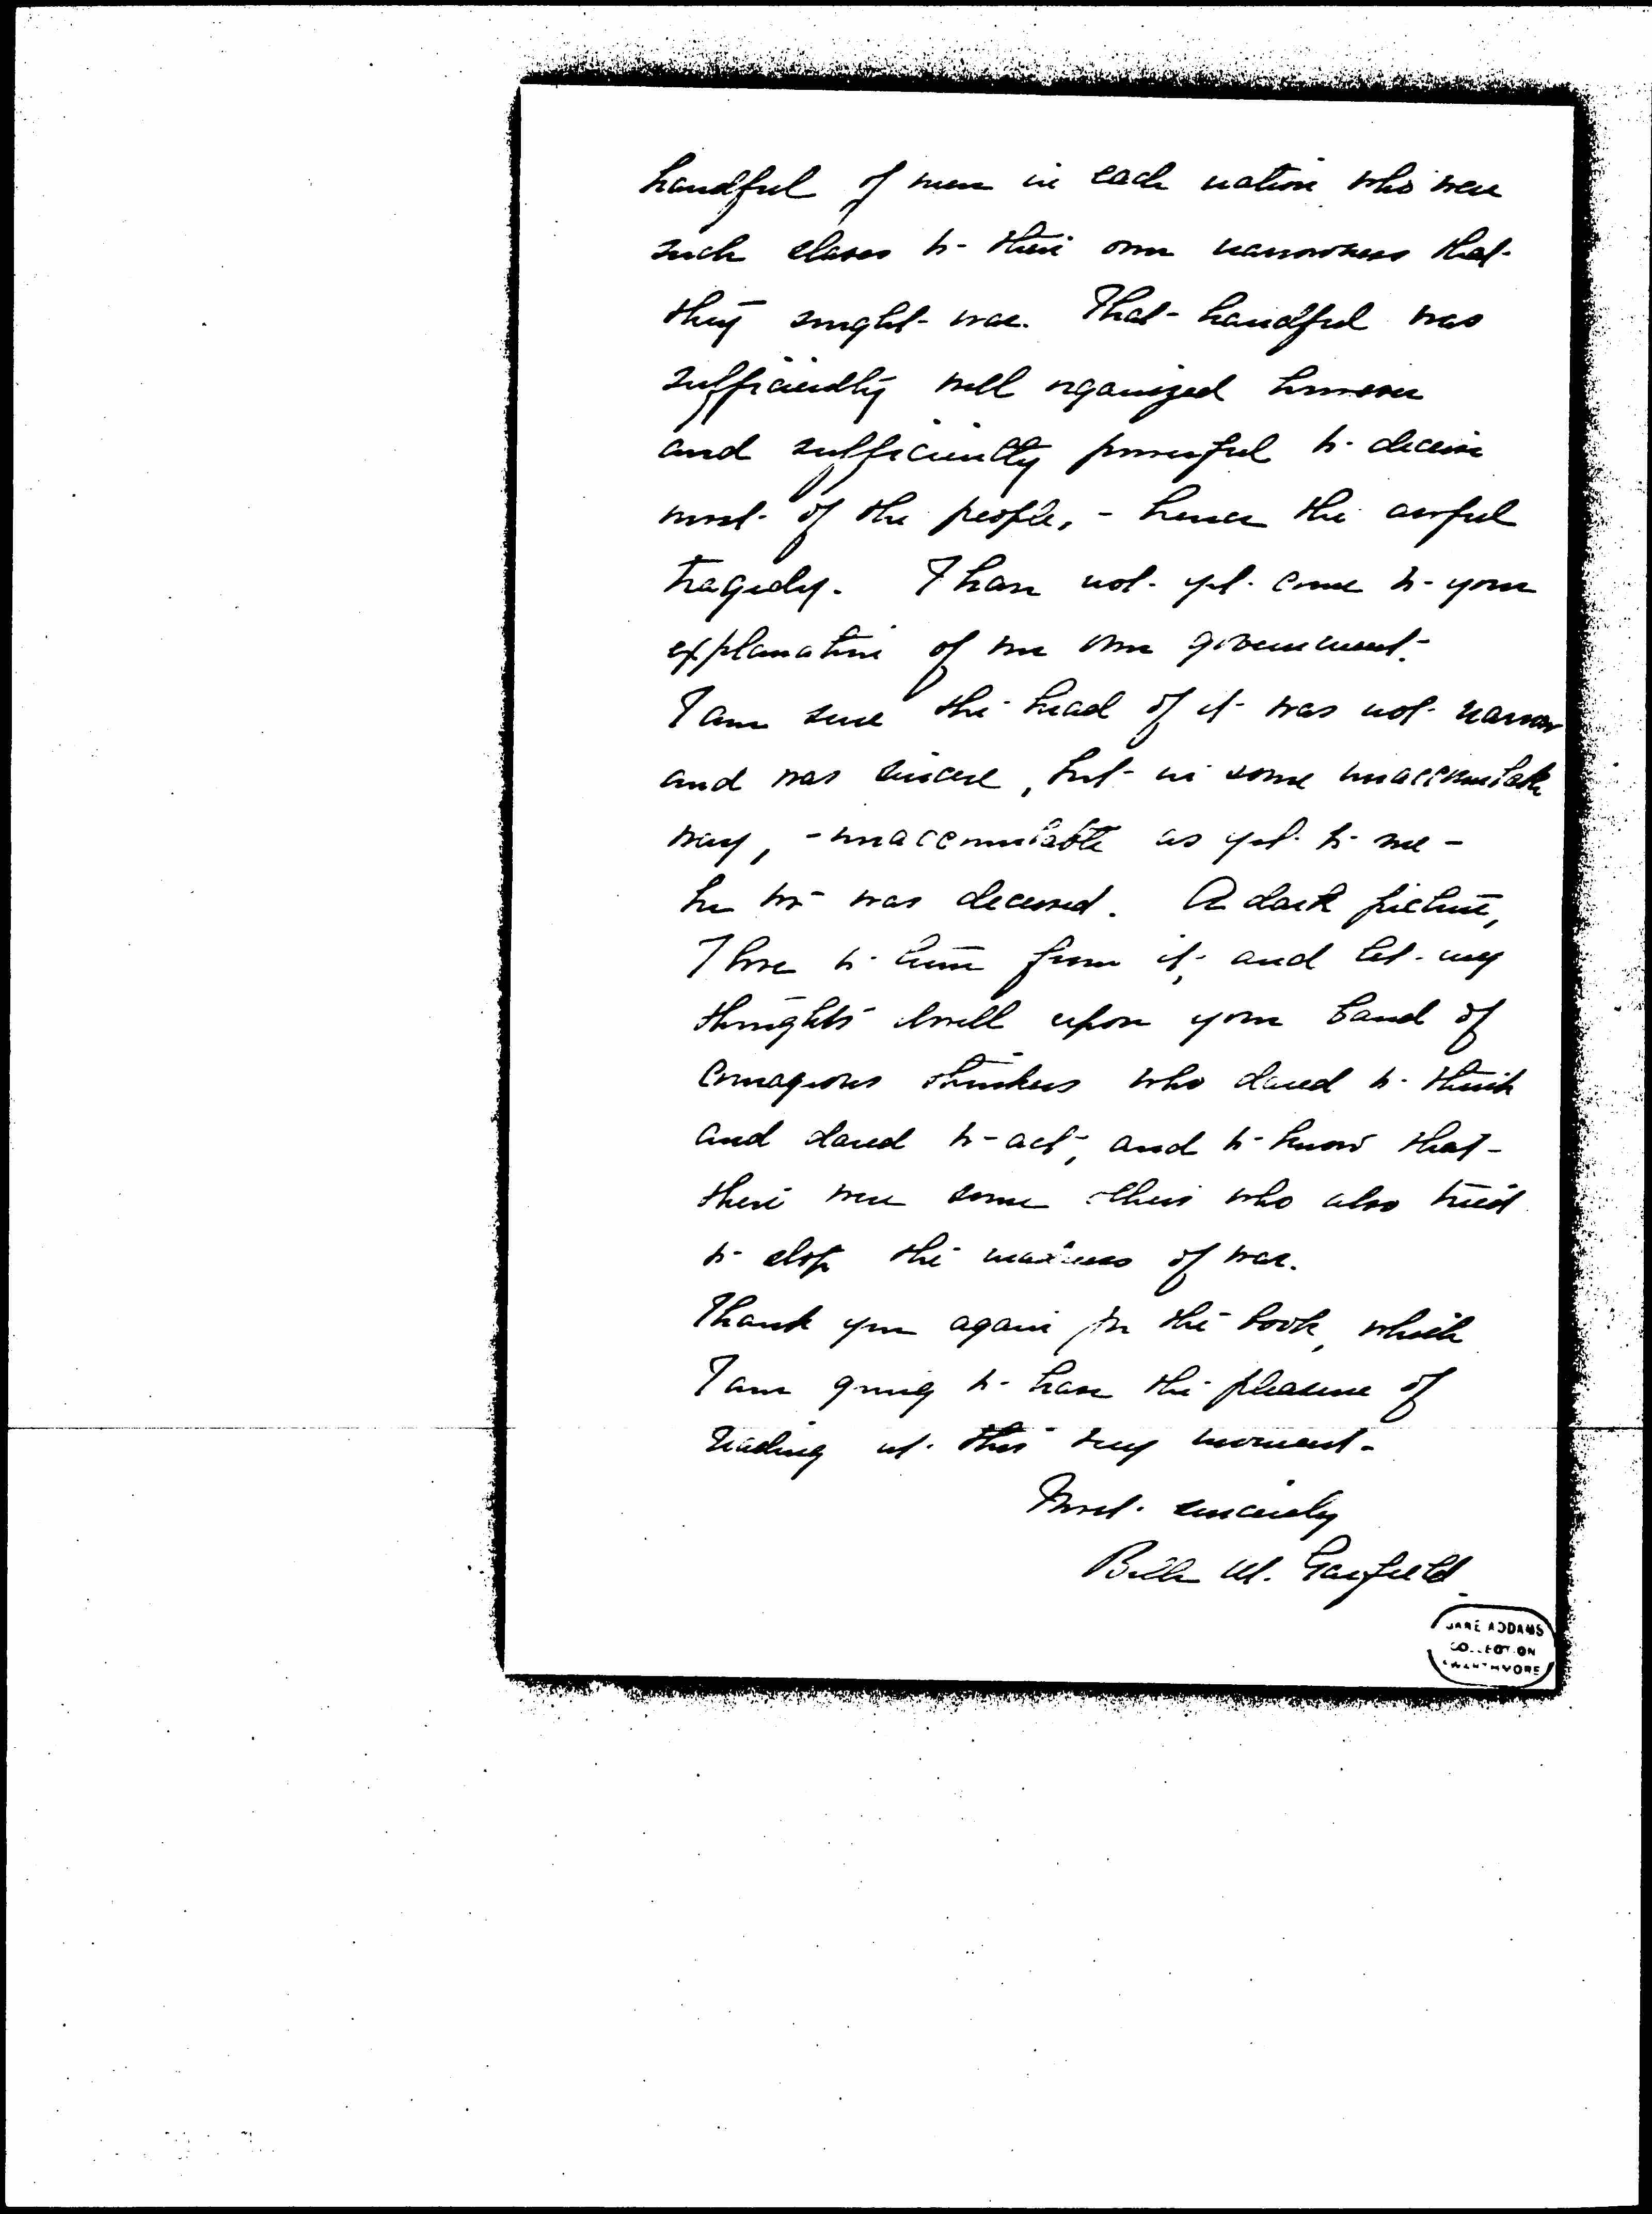 handful of men in each nation who were
such slaves to their own narrowness that
they sought war. That handful was
sufficiently well organized however
and sufficiently powerful to deceive
most of the people, - hence the awful
tragedy. I have not yet come to your
explanation of our own government.
I am sure the head of it was not narrow
and was sincere, but in some unaccountable
way, - unaccountable as yet to me -
he too was deceived. A dark picture,
I love to turn from it, and let my
thoughts dwell upon your band of
courageous thinkers who dared to think
and dared to act, and to know that
there were some others who also tried
to stop the madness of war.
Thank you again for the book, which
I am going to have the pleasure of
reading at this very moment.
Most sincerely
Belle M. Garfield
JANE ADDAMS
COLLECTION
SWARTHMORE